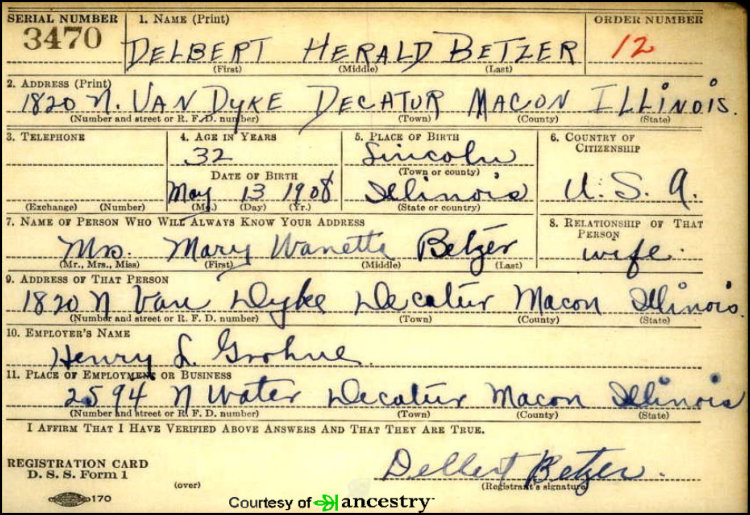 SERIAL NUMBER 1. NAME (Print) ORDER NUMBER
3470 DELBERT HERALD BETZER 12
(First) (Middle) (Last)
2. ADDRESS (Print)
1820 N. VAN DYKE DECATUR MACON ILLINOIS.
(Number and street or R. F. D. number) (Town) (County) (State)
3. TELEPHONE 4. AGE IN YEARS 5. PLACE OF BIRTH 6. COUNTRY OF CITIZENSHIP
32 Lincoln
DATE OF BIRTH (Town or county)
May 13 1908 Illinois U.S.A.
(Exchange) (Number) (Mo.) (Day) (Yr.) (State or country)
7. NAME OF PERSON WHO WILL ALWAYS KNOW YOUR ADDRESS 8. RELATIONSHIP OF THAT PERSON
Mrs. Mary Wanetta Betzer wife.
(Mr., Mrs., Miss) (First) (Middle) (Last)
9. ADDRESS OF THAT PERSON
1820 N Van Dyke Decatur Macon Illinois.
(Number and street or R. F. D. number) (Town) (County) (State)
10. EMPLOYER'S NAME
Henry L. Grohne
11. PLACE OF EMPLOYMENT OR BUSINESS
2594 N Water Decatur Macon Illinois
(Number and street or R. F. D. number) (Town) (County) (State)
I AFFIRM THAT I HAVE VERIFIED ABOVE ANSWERS AND THAT THEY ARE TRUE.
REGISTRATION CARD
D. S. S. Form 1 Delbert Betzer.
(over) (Registrant's signature)
170
Courtesy of ancestry